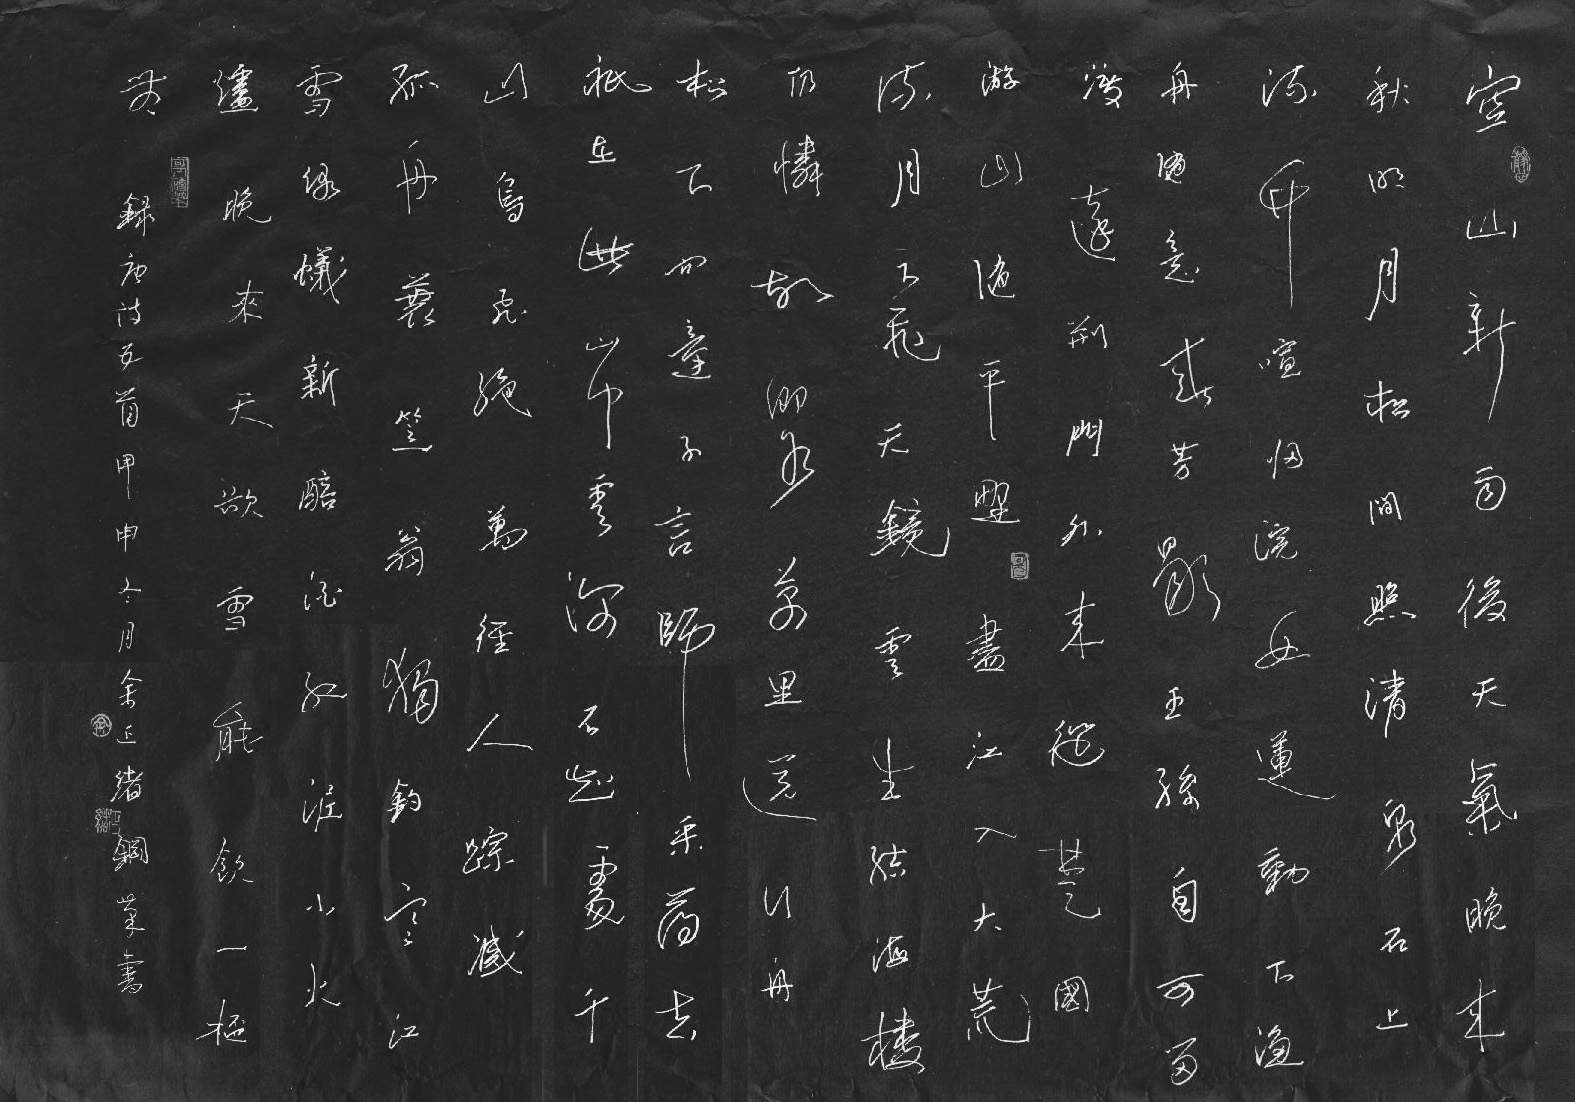 空山新雨後天氣晚來
秋明月松間照清泉石上
流竹喧归浣女蓮動下漁
舟隨意春芳歇王孫自可留
渡遠荊門外來從楚國
游山隨平野盡江入大荒
流月下飛天鏡雲生結海樓
仍憐故鄉水萬里送行舟
松下問童子言師采藥去
祇在此山中雲深不知處千
山鳥飛絕萬徑人踪滅
孤舟蓑笠翁獨釣寒江
雪綠蟻新醅酒紅泥小火
爐晚來天欲雪能飲一杯
無 錄唐詩五首甲申冬月余正緒鋼筆書